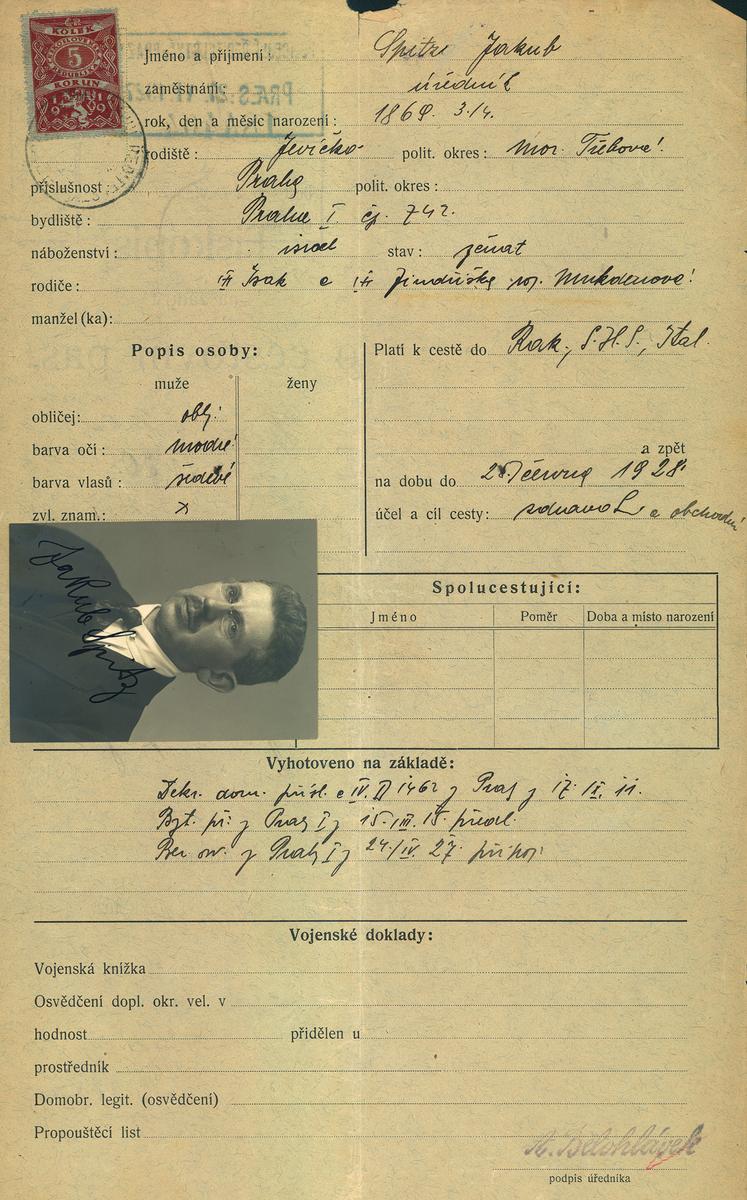 KOLEK
5
KORUN
1919
Jméno a příjmení: Spitz Jakub
zaměstnání: úředník
rok, den a měsíc narození: 1869. 3./4.
rodiště: Jevíčko polit. okres: Mor. Třebová
příslušnost: Praha polit. okres:
bydliště: Praha I čp. 742.
náboženství: israel stav: ženat
rodiče: Isak a Jindřiška roz.
manžel (ka):
Popis osoby:
muže ženy
obličej: obl.
barva očí: modré
barva vlasů: šedivé
zvl. znam.: x
Platí k cestě do Rak., S.H.S., Ital.
a zpět
na dobu do června 1928.
účel a cíl cesty: zdravot. a obchodní
Jakub Spitz
Spolucestující:
Jméno Poměr Doba a místo narození
Vyhotoveno na základě:
Dekr. dom. přísl. č IV. 1462 z Prahy z 17. IX. 11.
Byt. př. z Prahy I z 15. III. 15. předl.
Ber. sv. z Prahy I z 24./IV. 27. připoj.
Vojenské doklady:
Vojenská knížka
Osvědčení dopl. okr. vel. v
hodnost přidělen u
prostředník
Domobr. legit. (osvědčení)
Propouštěcí list
A. Bělohlávek
podpis úředníka